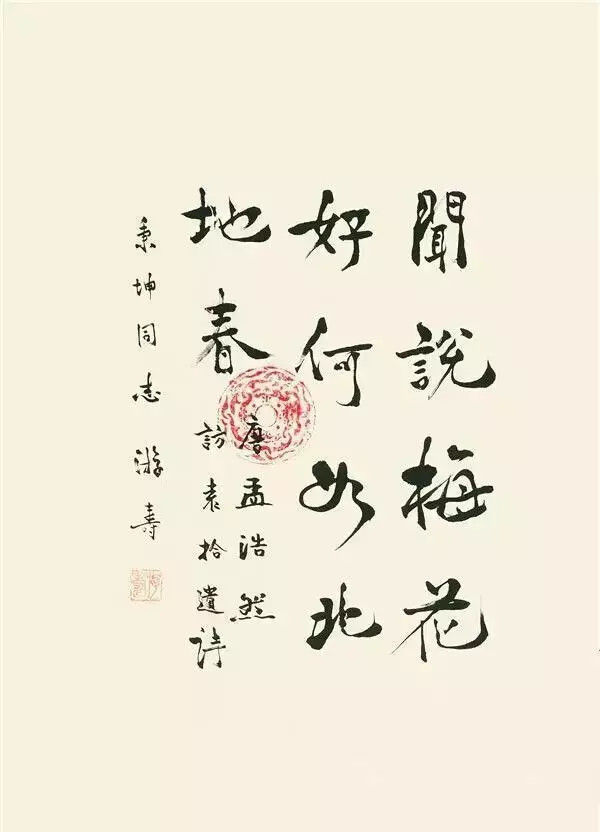 聞說梅花
好何如北
地春
唐孟浩然
訪袁拾遺詩
秉坤同志游壽